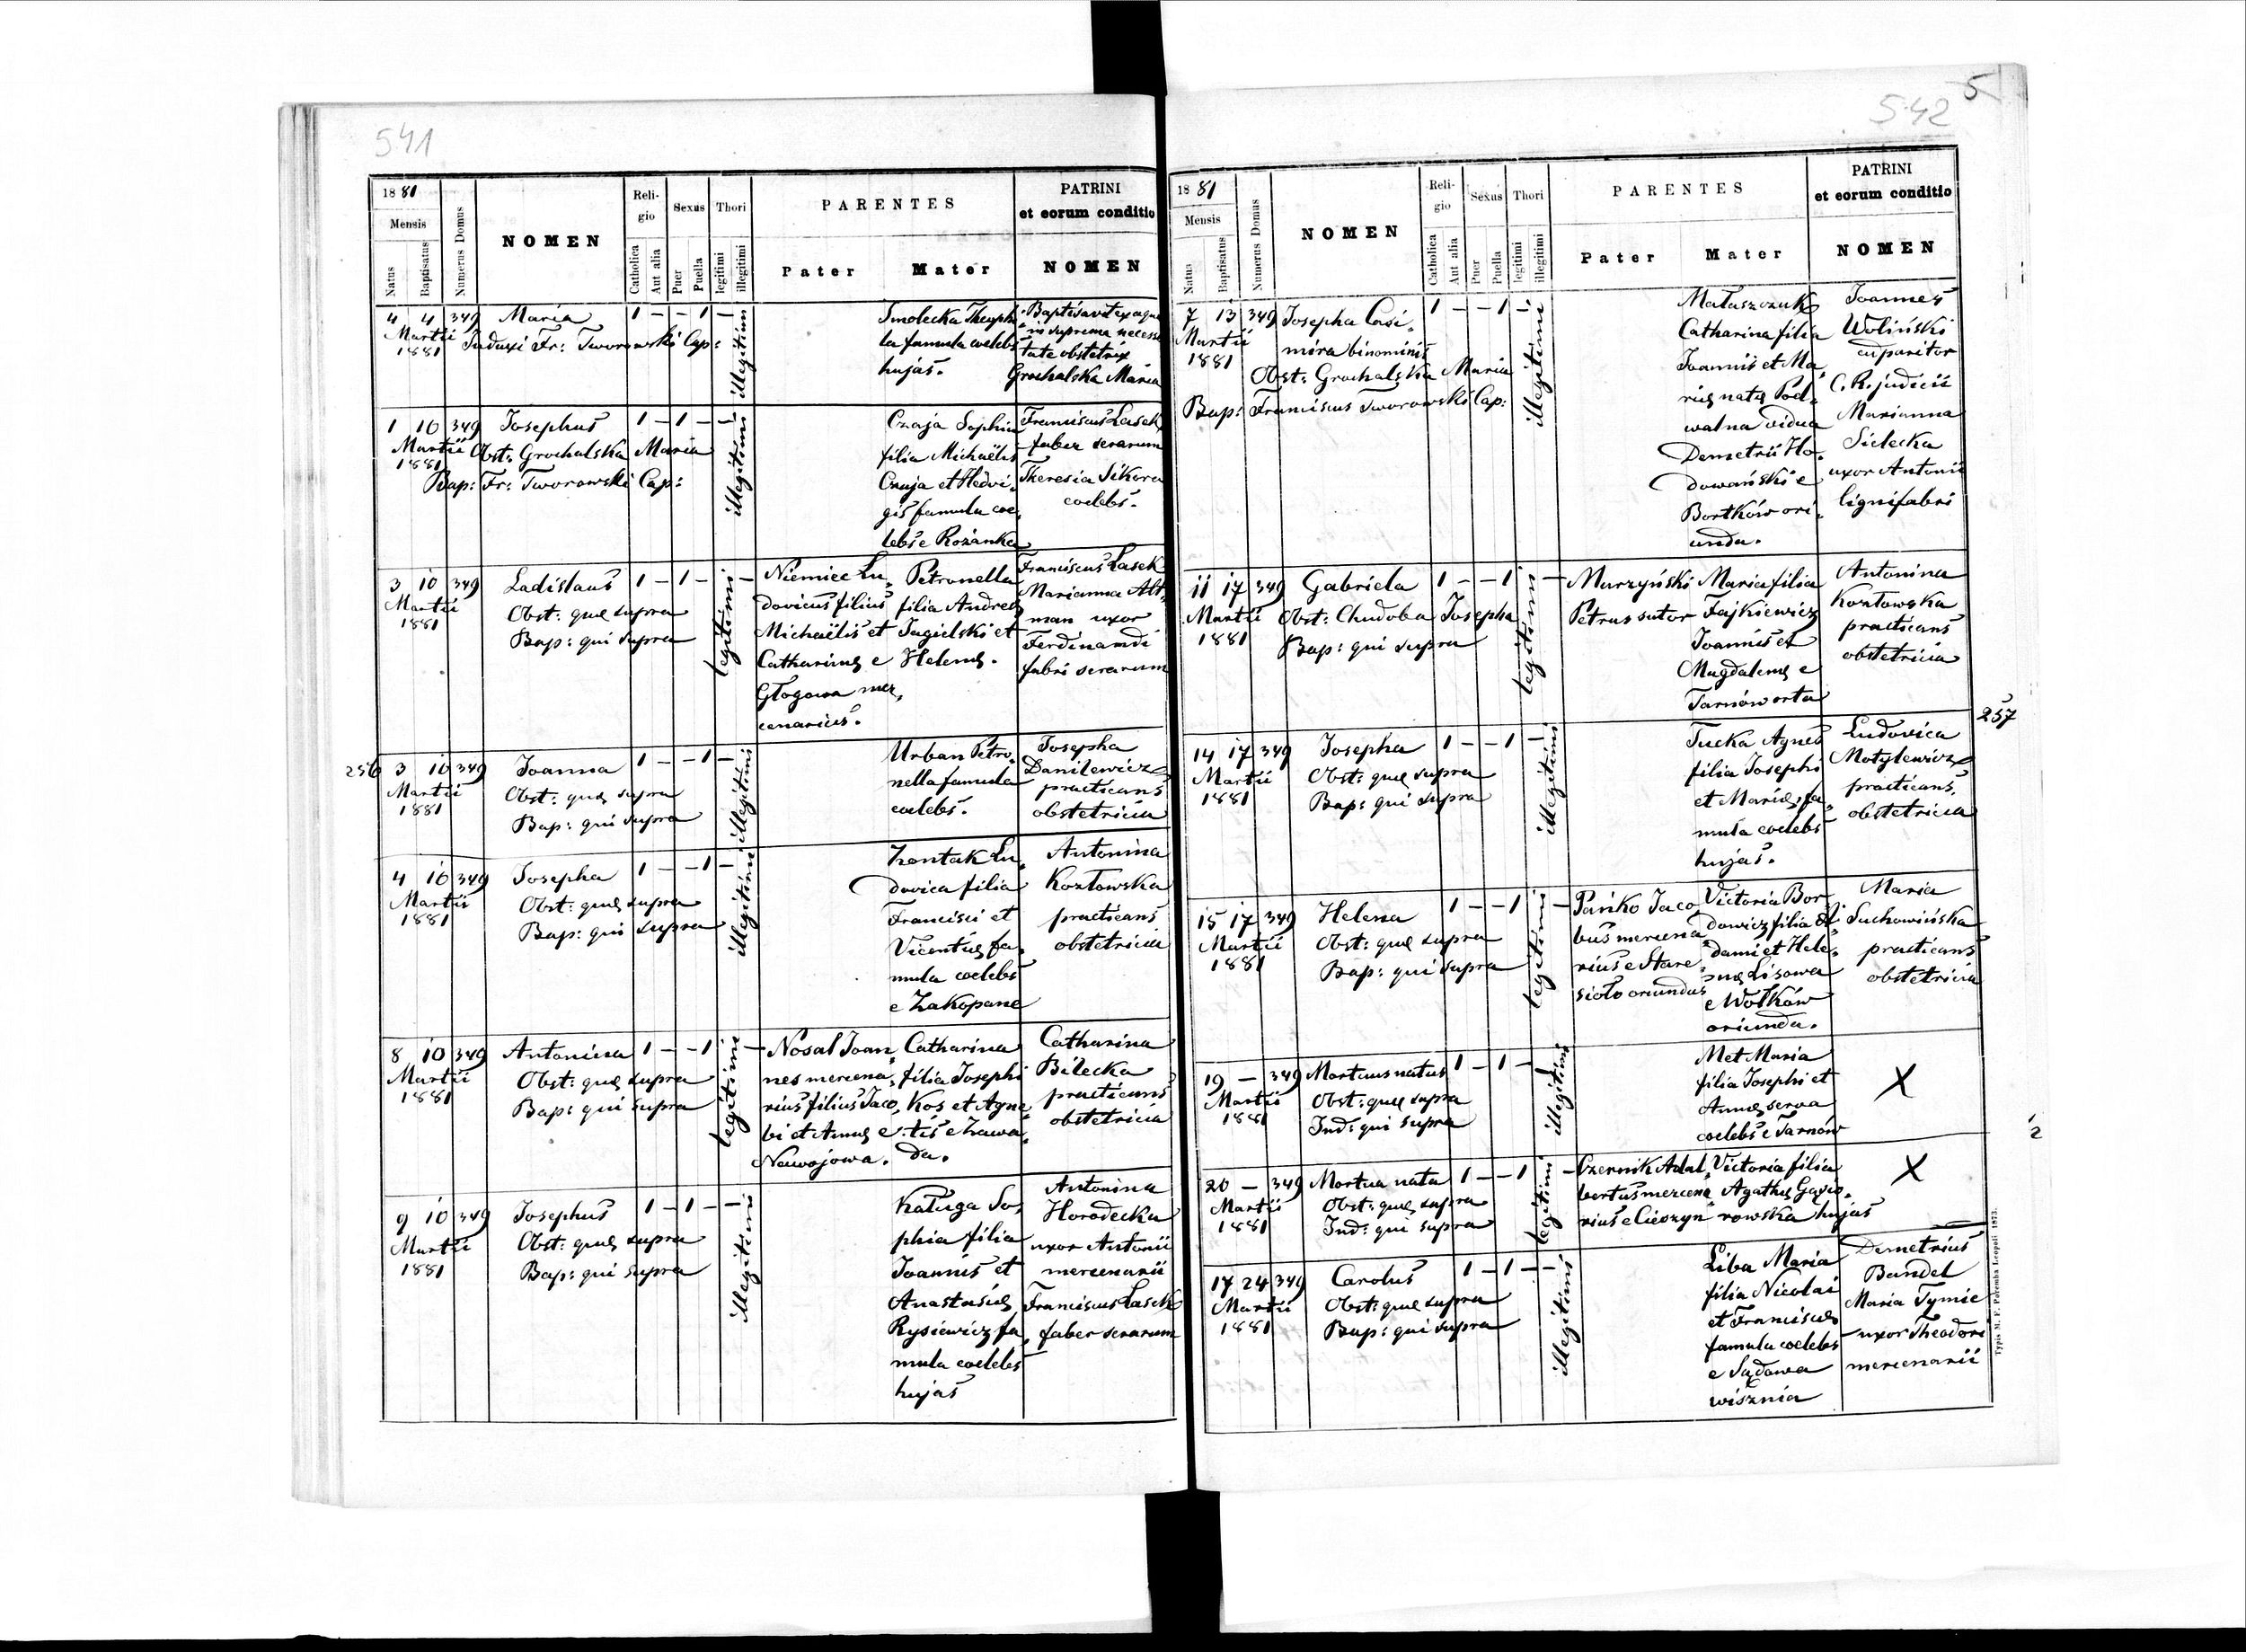 541
1881
Mensis
Natus
Baptisatus
Numerus Domus
NOMEN
Reli-
gio
Catholica
Aut alia
Sexus
Puer
Puella
Thori
legitimi
illegitimi
PARENTES
Pater
Mater
PATRINI
et eorum conditio
NOMEN
4 4 349 Maria 1 – – 1 –
Martii
1881
Fr: Tworowski Cap:
illegitimi
Smolecka Theophi
la famula coelebs
hujas.
Baptisavit ex aqua
in suprema necessi
tate obstetrix
Grochalska Maria
1 10 349 Josephus 1 – 1 – –
Martii
1881
Obst: Grochalska Maria
Bap: Fr: Tworowski Cap:
illegitimi
Czaja Sophia
filia Michaëlis
Czaja et Hedvi,
gis famula coe,
lebs e Rożanka
Franciscus Lasek
faber serarum
Theresia Sikora
coelebs.
3 10 349 Ladislaus 1 – 1 – –
Martii
1881
Obst: quæ supra
Bap: qui supra
legitimi
Niemiec Lu,
dovicus filius
Michaëlis et
Catharinæ e
Głogowa mer,
cenarius.
Petronella
filia Andreæ
Jagielski et
Helenæ.
Franciscus Lasek
Marianna Alt,
man uxor
Ferdinandi
fabri serarum
256
3 10 349 Joanna 1 – – 1 –
Martii
1881
Obst: quæ supra
Bap: qui supra
illegitimi
Urban Petro,
nella famula
coelebs.
Josepha
Danilewicz
practicans
obstetricia
4 10 349 Josepha 1 – – 1 –
Martii
1881
Obst: quæ supra
Bap: qui supra
illegitimi
Zontak Lu,
dovica filia
Francisci et
Vicentiæ fa,
mula coelebs
e Zakopane
Antonina
Kozłowska
practicans
obstetricia
8 10 349 Antonina 1 – – 1 –
Martii
1881
Obst: quæ supra
Bap: qui supra
legitimi
Nosal Joan,
nes mercena,
rius filius Jaco,
bi et Annæ e
Nawojowa.
Catharina
filia Josephi
Kos et Agne
tis e Zawa,
da.
Catharina
Bilecka
practicans
obstetricia
9 10 349 Josephus 1 – 1 – –
Martii
1881
Obst: quæ supra
Bap: qui supra
illegitimi
Kaługa So,
phia filia
Joannis et
Anastasiæ
Rysiewicz fa,
mula coelebs
hujas
Antonina
Horodecka
uxor Antonii
mercenarii
Franciscus Lasek
faber serarum
542
5
1881
Mensis
Natus
Baptisatus
Numerus Domus
NOMEN
Reli-
gio
Catholica
Aut alia
Sexus
Puer
Puella
Thori
legitimi
illegitimi
PARENTES
Pater
Mater
PATRINI
et eorum conditio
NOMEN
7 13 349 Josepha Casi, 1 – – 1 –
Martii
1881
mira binominis
Obst: Grochalska Maria
Bap: Franciscus Tworowski Cap:
illegitimi
Matuszczuk
Catharina filia
Joannis et Ma,
riæ natæ Pod,
walna vidua
Demetrii Ho,
dowański e
Bortków ori,
unda.
Joannes
Woliński
adparitor
C. R. judicii
Marianna
Sielecka
uxor Antonii
lignifabri
11 17 349 Gabriela 1 – – 1 –
Martii
1881
Obst: Chudoba Josepha
Bap: qui supra
legitimi
Murzyński
Petrus sutor
Maria filia
Fajkiewicz
Joannis et
Magdalenæ e
Tarnów orta
Antonina
Kozłowska
practicans
obstetricia
257
14 17 349 Josepha 1 – – 1 –
Martii
1881
Obst: quæ supra
Bap: qui supra
illegitimi
Tucka Agnes
filia Josephi
et Mariæ, fa,
mula coelebs
hujas.
Ludovica
Motylewicz
practicans
obstetricia
15 17 349 Helena 1 – – 1 –
Martii
1881
Obst: quæ supra
Bap: qui supra
legitimi
Pańko Jaco
bus mercena
rius e Stare,
sioło oriundus
Victoria Bor
dowicz filia A,
dami et Hele,
næ Lisowa
e Wołków
oriunda.
Maria
Suchowińska
practicans
obstetricia
19 – 349 Mortuus natus 1 – 1 – –
Martii
1881
Obst: quæ supra
Ind: qui supra
illegitimi
Met Maria
filia Josephi et
Annæ serva
coelebs e Tarnów
X
2
20 – 349 Mortua nata 1 – – 1 –
Martii
1881
Obst: quæ supra
Ind: qui supra
legitimi
Czernik Adal,
bertus mercena
rius e Cieszyn
Victoria filia
Agathæ Gąsio,
rowska hujas
X
17 24 349 Carolus 1 – 1 – –
Martii
1881
Obst: quæ supra
Bap: qui supra
illegitimi
Liba Maria
filia Nicolai
et Franciscæ
famula coelebs
e Sądowa
wisznia
Demetrius
Bandel
Maria Tymic
uxor Theodori
mercenarii
Typis M. F. Poremba Leopoli 1873.